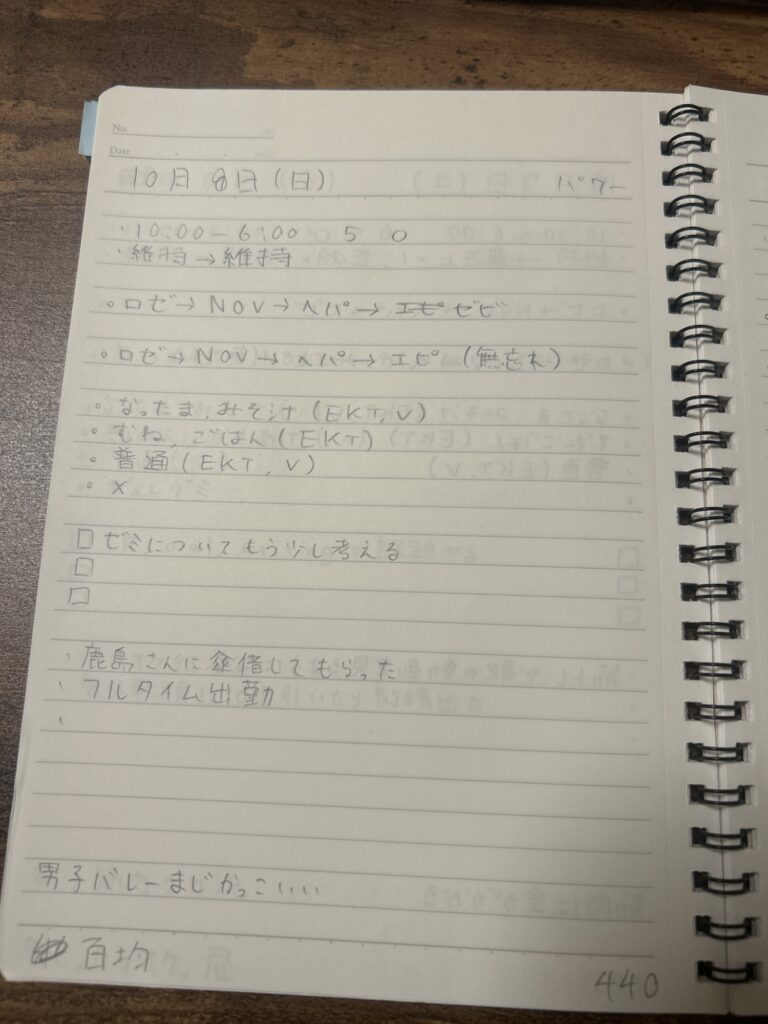 No.
Date
10月8日(日) パワー
・10:00～6:00 5 0
・維持→維持
○ロゼ→NOV→ヘパ→エピゼビ
○ロゼ→NOV→ヘパ→エピ(無忘れ)
○なったま,みそ汁(EKT,V)
○むね,ごはん(EKT)
○普通(EKT,V)
○×
□ゼミについてもう少し考える
□
□
・鹿島さんに傘借してもらった
・フルタイム出勤
・
男子バレーまじかっこいい
百均
440